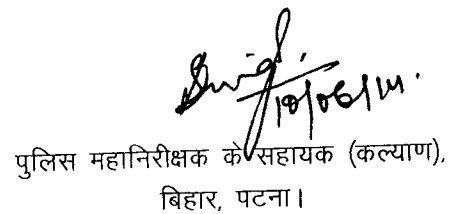 18/06/14.
पुलिस महानिरीक्षक के सहायक (कल्याण),
बिहार, पटना।